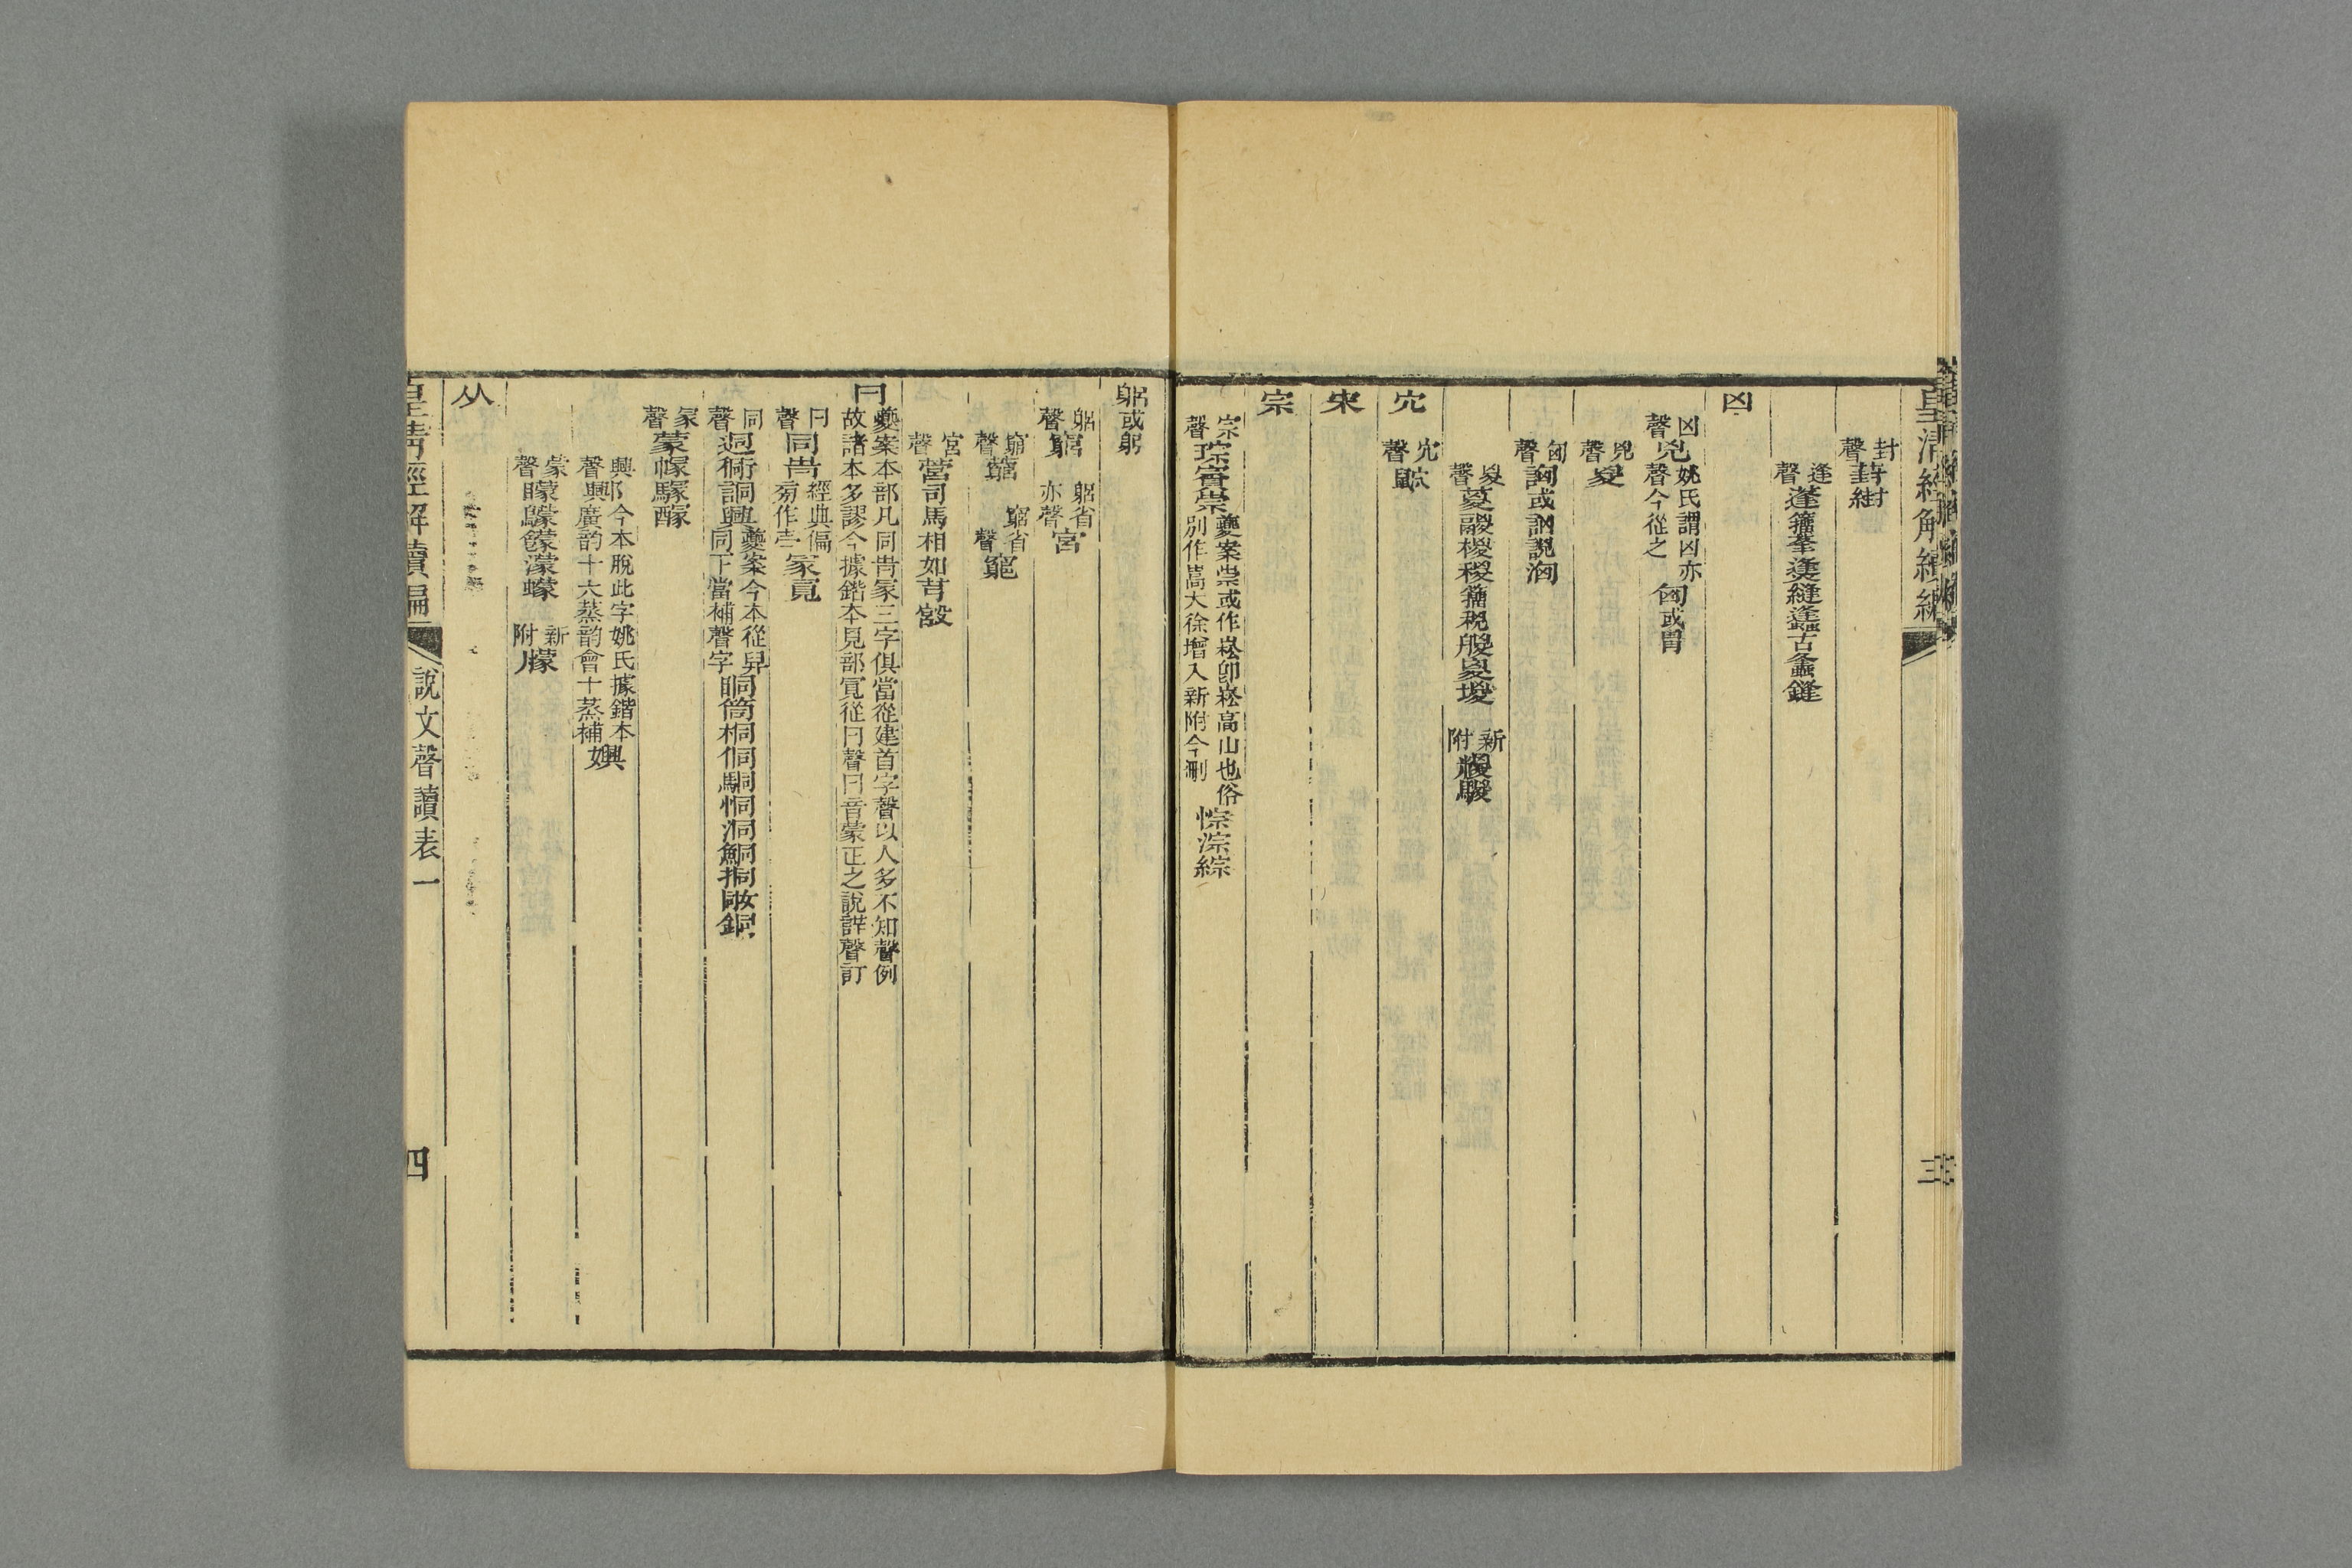 封聲葑䋽
逢聲蓬䈦㷭縫𧒒古蠭鏠
凶
凶聲兇姚氏謂凶亦聲今從之匈或胷
兇聲㚇
匈聲訩或説洶
㚇聲葼鬷椶稯艐嵕堫 新附糉騣
宂聲
宋
宗
宗聲琮賨崇夔案崇或作崧卽崧高山也俗別作嵩大徐增入新附今刪悰淙綜
躳或躬
躳聲竆 躳省亦聲宮
竆聲藭 竆省聲竆
宮聲營司馬相如芎
冃夔案本部凡同冑冡三字俱當從建首字聲以人多不知聲例故諸本多謬今據鍇本見部冕從冃聲冃音蒙正之說詳聲訂
冃聲同冑經典偏旁作壴冡冕
同聲迵衕詷興夔案今本從舁同下當補聲字眮筒桐侗駧恫洞鮦挏銅
冡聲蒙幏騣醵
興聲𨞷今本脫此字姚氏據鍇本興廣韵十六蒸韵會十蒸補嬹
蒙聲矇鸏饛濛蠓 新附朦
从
皇淸經解續編 說文聲讀表一 四
三